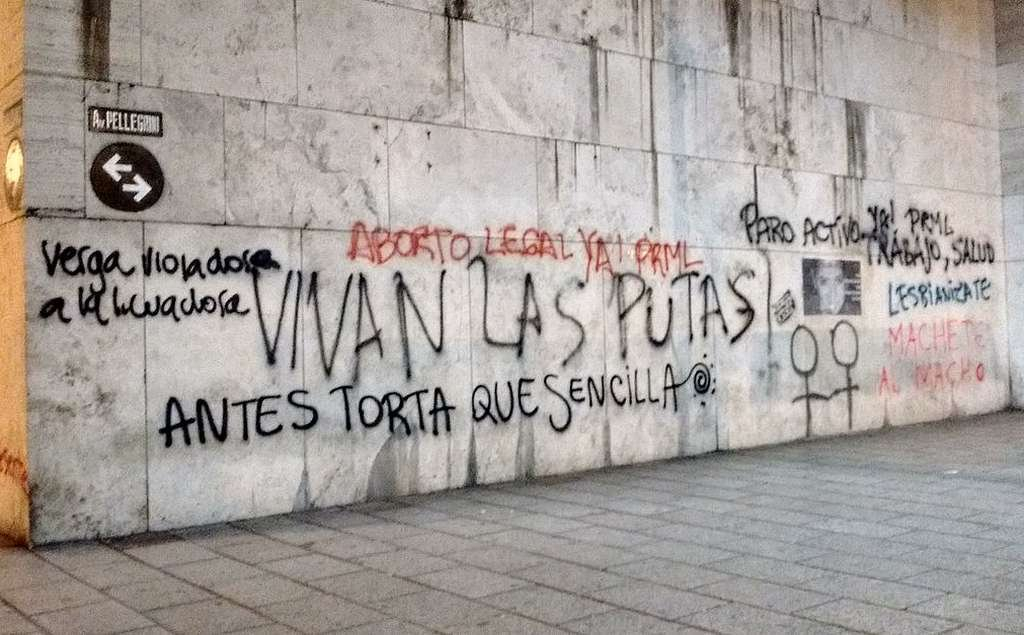 Av PELLEGRINI
verga violadora
a la licuadora
ABORTO LEGAL YA! PRML
VIVAN LAS PUTAS
ANTES TORTA QUE SENCILLA
PARO ACTIVO YA! PRML
TRABAJO, SALUD
LESBIANIZATE
MACHETE
AL MACHO